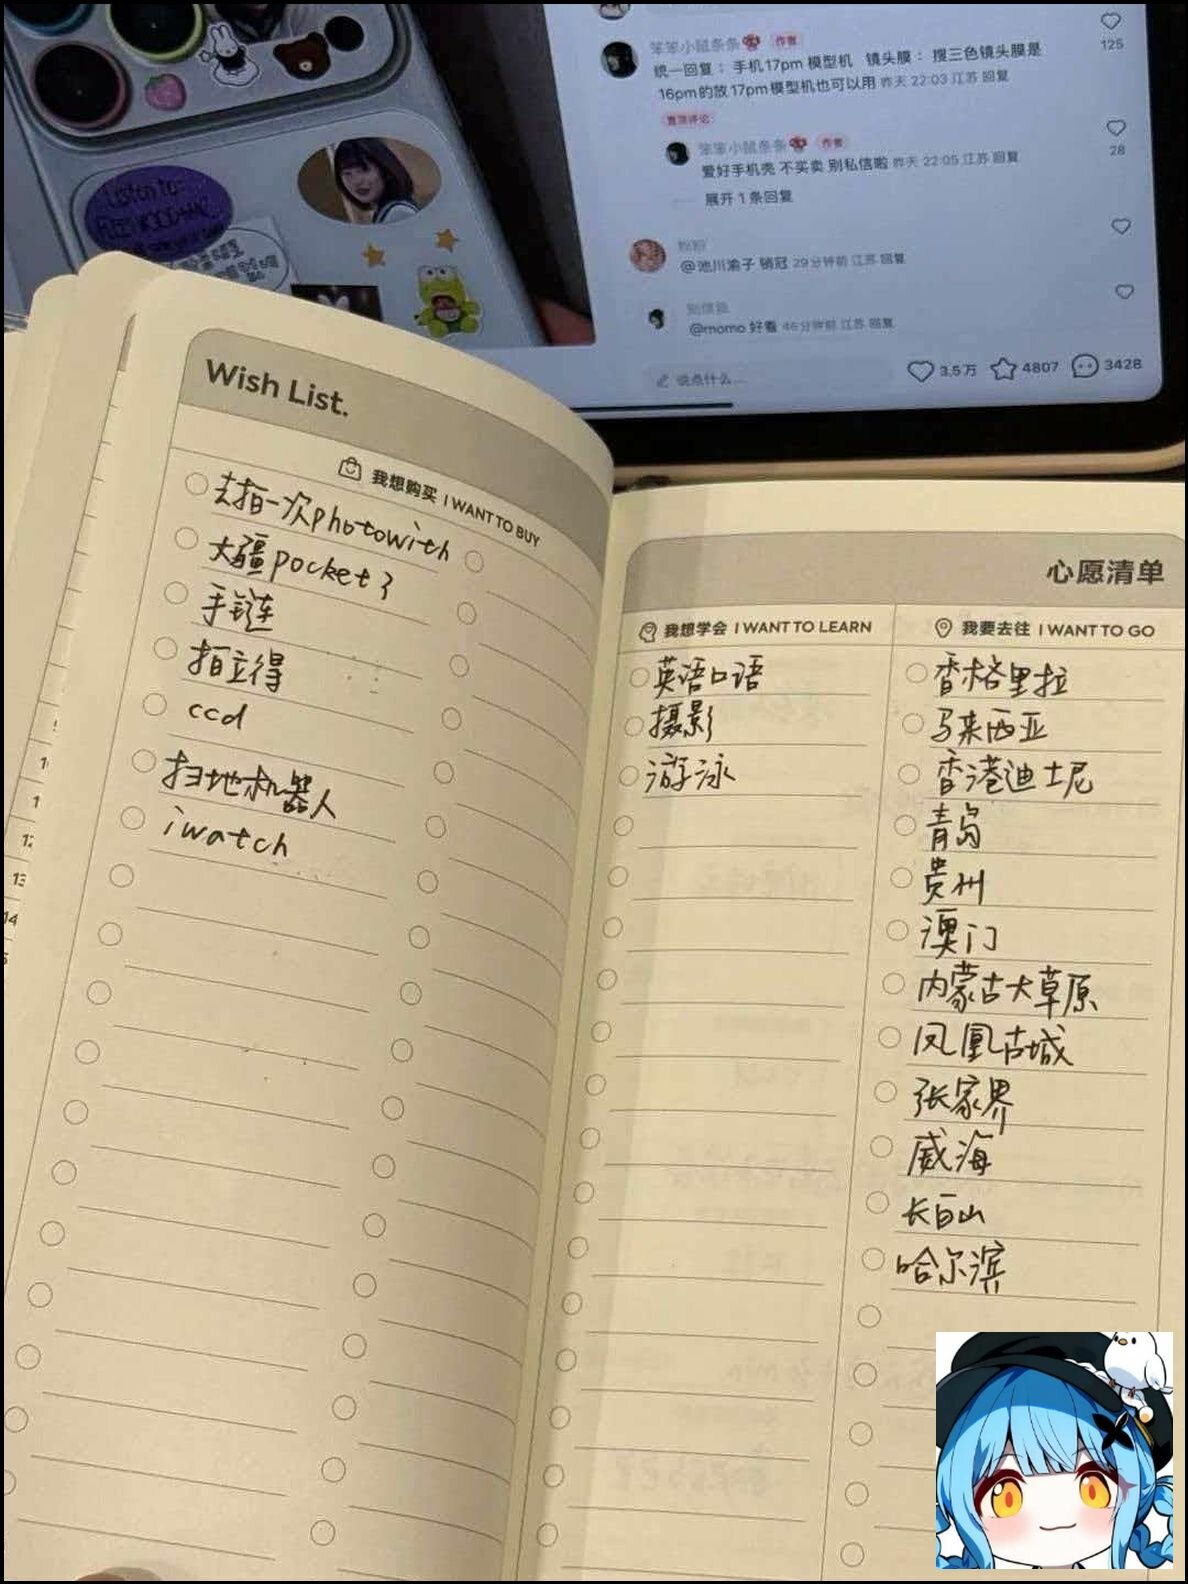 作者
统一回复：手机17pm 模型机 镜头膜：搜三色镜头膜是
16pm的放17pm模型机也可以用 昨天 22:03 江苏 回复
置顶评论
125
笨笨小鼠条条 作者
爱好手机壳 不买卖 别私信啦 昨天 22:05 江苏 回复
28
展开 1 条回复
@池川渝子 销冠 29分钟前 江苏 回复
@momo 好看 46分钟前 江苏 回复
说点什么...
3.5万 4807 3428
Listen to:
Wish List.
我想购买 I WANT TO BUY
去拍一次photowith
大疆pocket3
手链
拍立得
ccd
扫地机器人
iwatch
心愿清单
我想学会 I WANT TO LEARN
英语口语
摄影
游泳
我要去往 I WANT TO GO
香格里拉
马来西亚
香港迪士尼
青岛
贵州
澳门
内蒙古大草原
凤凰古城
张家界
威海
长白山
哈尔滨
11
12
13
14